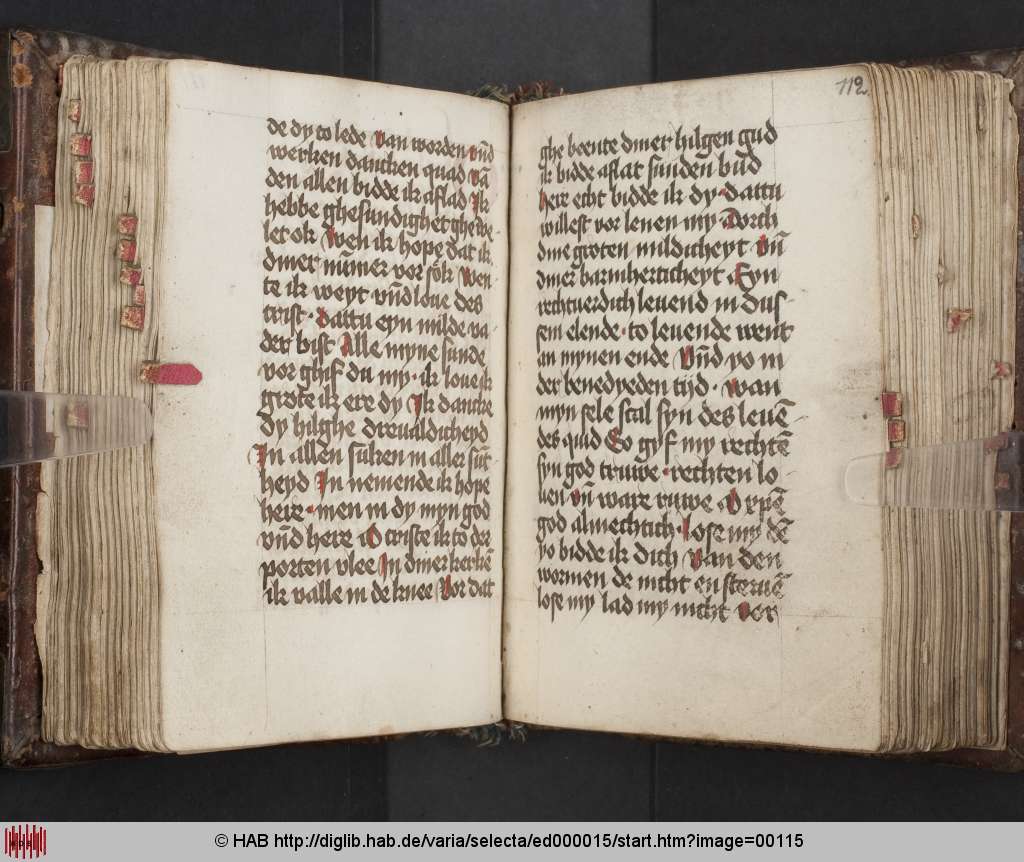 de dy to lede van worden vn̄d
werken dancken quad vā
den allen bidde ik aflad Ik
hebbe ghesundighet ghewe
let ok Wen ik hope dat ik
diner nūmer vor sok Wen
te ik weyt vn̄d loue des
crist · Dattu eyn milde va
der bist Alle myne sunde
vor ghif du my · ik loue ik
grote ik ere dy Ik dancke
Dy hilghe dreualdicheyd
In allen suken in aller sut̄
heyd In nemende ik hope
here · men in dy myn god
vn̄d here O criste ik to der
porten vlee In diner kerkē
ik valle in de knee Vor dat
112
ghe beente diner hilgen gud
ik bidde aflat sunden bud
here echt bidde ik dy · dattu
willest vor lenen my Dorch
dine groten mildicheyt Vn̄
diner barmherticheyt · Eyn
rechtuerdich leuend in dus
sem elende · to leuende went
an mynen ende Vn̄d yo in
der benedyeden tijd · Wan
myn sele scal syn des leuē
des quid Eo gyf my rechtē
syn god truwe · rechten lo
uen vn̄ ware ruwe ·
god almechtich · lose my dē
yo bidde ik dich Van den
wormen de nicht en steruē
lose my lad my nicht vor
© HAB http://diglib.hab.de/varia/selecta/ed000015/start.htm?image=00115